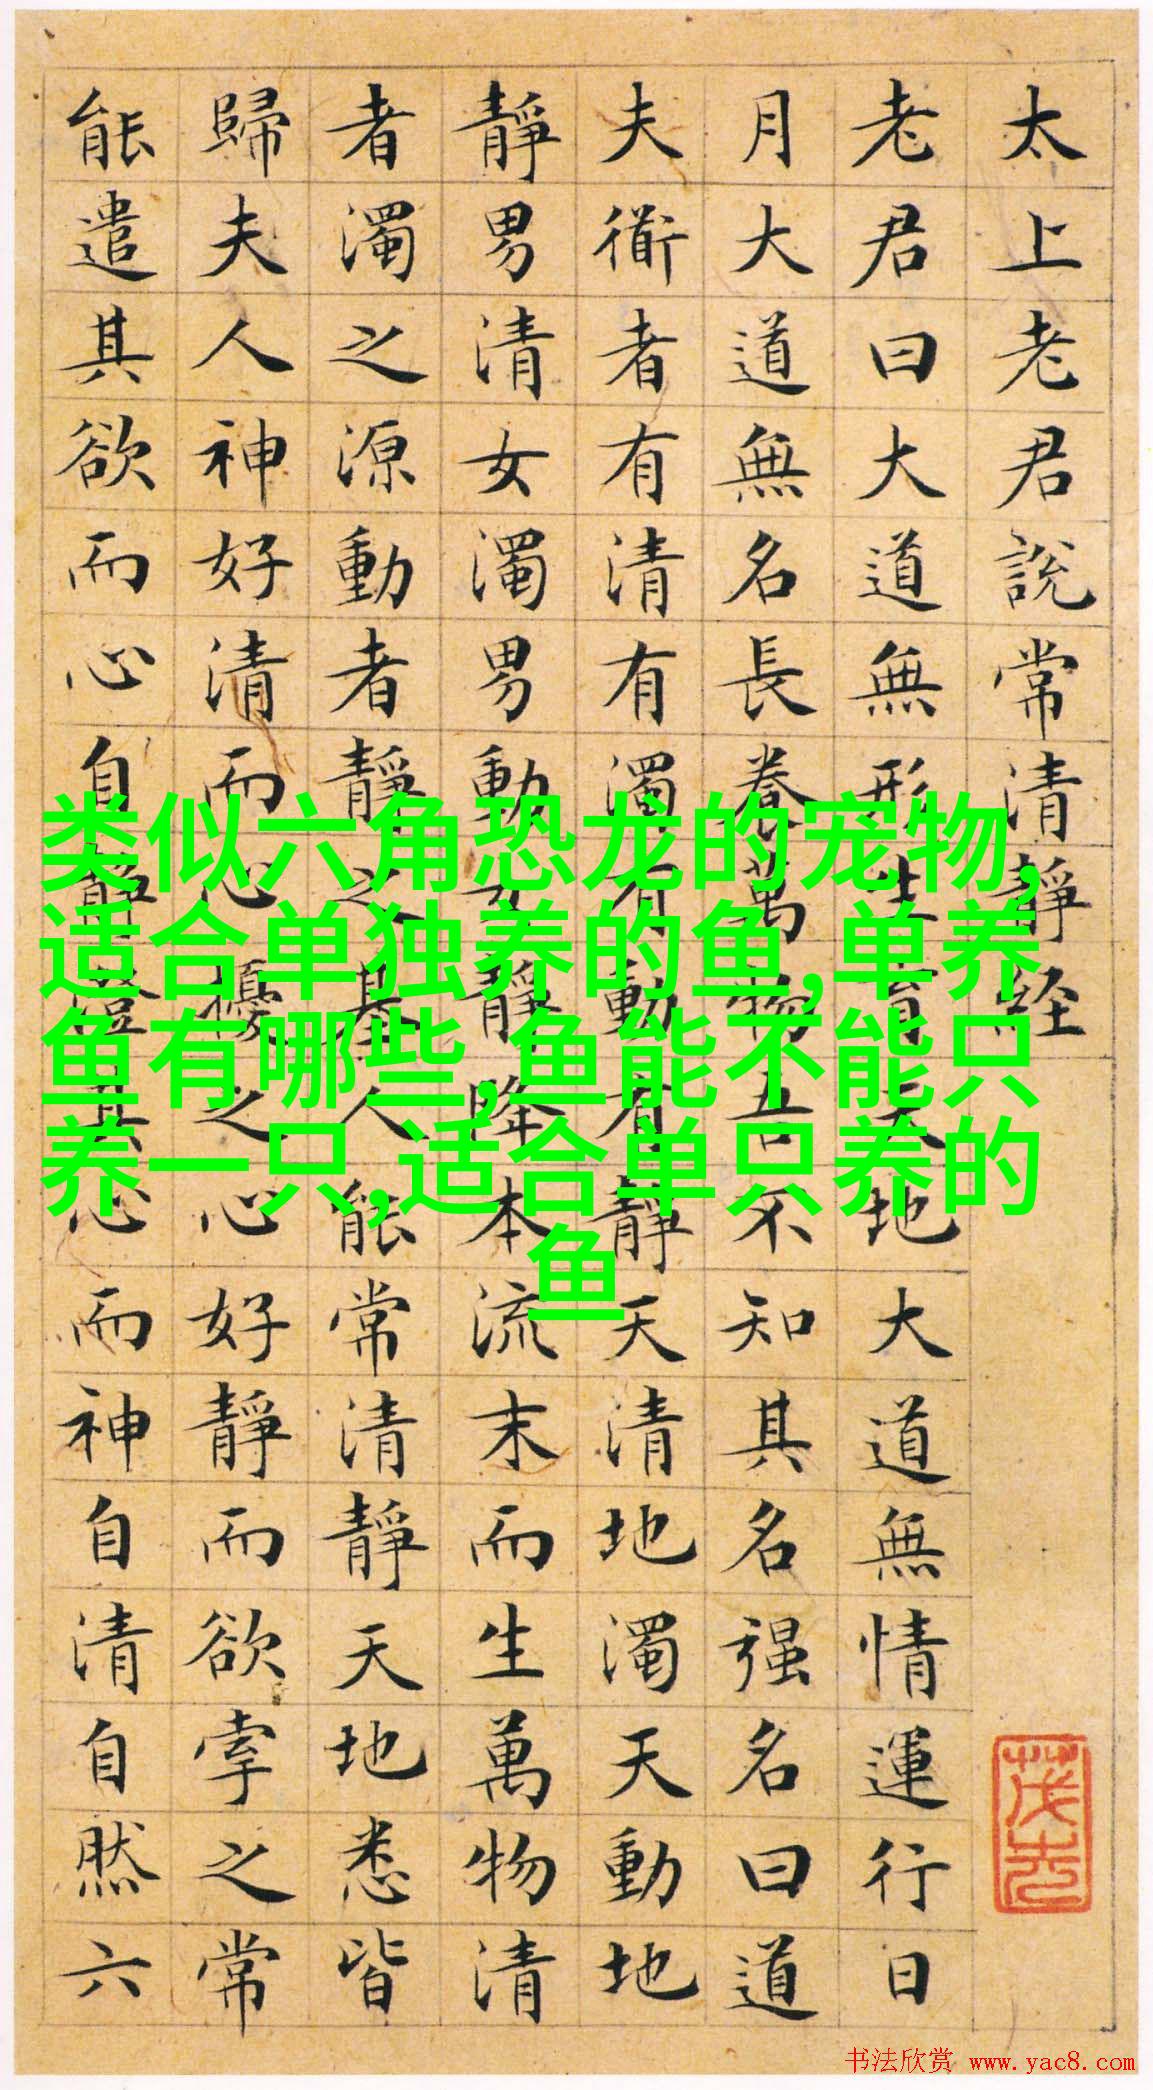 太上老君說常清靜経
老君曰大道無形生育天地大道無情運行日
月大道無名長養萬物吾不知其名强名曰道
夫衜者有清有濁有動有靜天清地濁天動地
靜男清女濁男動女靜降本流末而生萬物清
者濁之源動者靜之基人能常清靜天地悉皆
歸夫人神好清而心擾之心好靜而欲牽之常
能遣其欲而心自靜澄其心而神自清自然六
类似六角恐龙的宠物,
适合单独养的鱼,单养
鱼有哪些,鱼能不能只
养一只,适合单只养的
鱼
书法欣赏 www.yac8.com